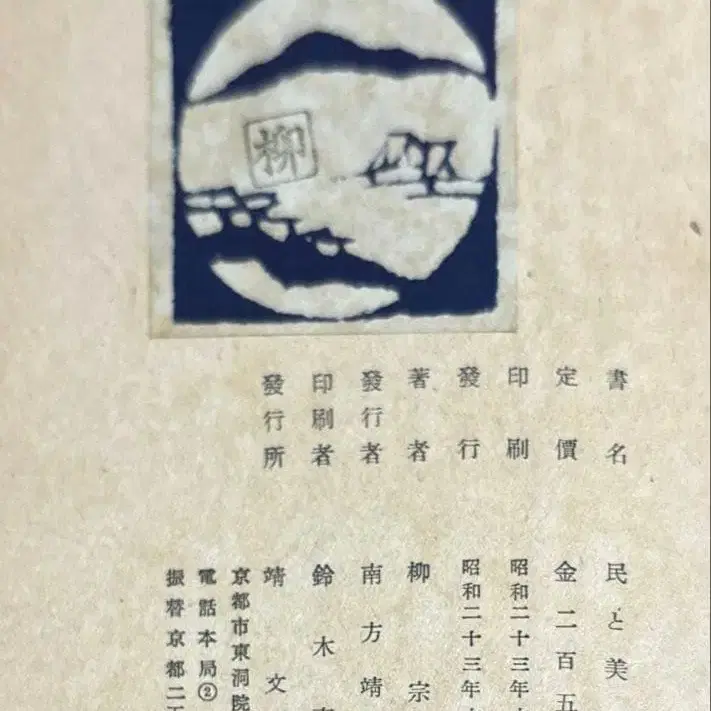 柳
書名 民と美
定價 金二百五
印刷 昭和二十三年
發行 昭和二十三年
著者 柳宗
發行者 南方靖
印刷者 鈴木
發行所 靖文
京都市東洞院
電話本局②
振替京都二